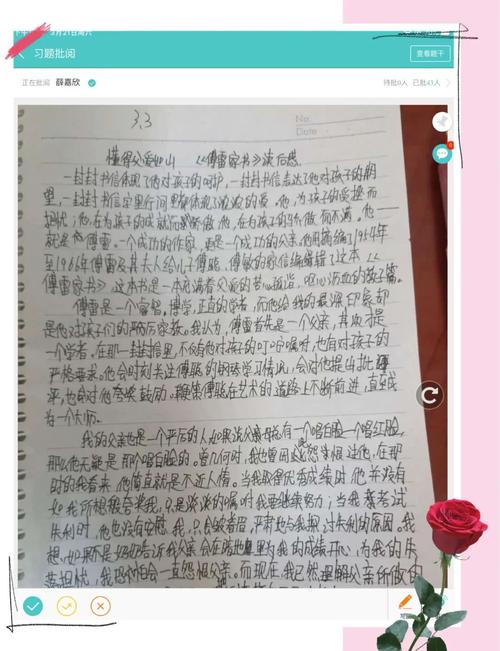 3月21日周六
习题批阅
查看题干
正在批阅 薛嘉欣
待批0人 已批43人
3.3
No.
Date
懂得父爱如山 《傅雷家书》读后感
一封封书信体现了他对孩子的呵护,一封封书信表达了他对孩子的期
望,一封封书信字里行间里都体现了浓浓的爱。他,为孩子的受挫而
担忧;他,在为孩子的成就而骄傲;他,在为孩子的骄傲而不满。他
就是傅雷。一个成功的作家,更是一个成功的父亲。他用摘编了1954年
至1966年傅雷及其夫人给儿子傅聪、傅敏的家信编辑了这本《
傅雷家书》这本书是一本充满着父爱的苦心孤诣、呕心沥血的教子篇。
傅雷是一个睿智、博学、正直的学者,而他给我的最深印象却
是他对孩子们的严厉容教。我认为,傅雷首先是一个父亲,其次才是
一个学者。在那一封封信里,不仅有他对孩子的叮咛嘱咐,也有对孩子的
严格要求。他会时刻关注傅聪的钢琴学习情况,会对他提出批
评,也会对他夸奖鼓励,鞭策傅聪在艺术的道路上不断前进,直至成
为一个大师。
我的父亲也是一个严厉的人,如果说父亲母亲有一个唱白脸一个唱红脸,
那么他无疑是那个唱白脸的。曾几何时,我也曾因此怨恨过他,在那
时的我看来,他简直就是不近人情。当我取得优秀成绩时他并没有
如我所想般夸奖我,只是淡淡的嘱咐我要继续努力;当我考试
失利时,他也没有安慰我,只会皱着眉,严肃地与我探讨失利的原因。我
想,如果不是妈妈告诉我父亲会在暗地里为我的成绩开心,为我的失
落担忧,我恐怕会一直怨恨父亲。而现在,我已然理解父亲所做的